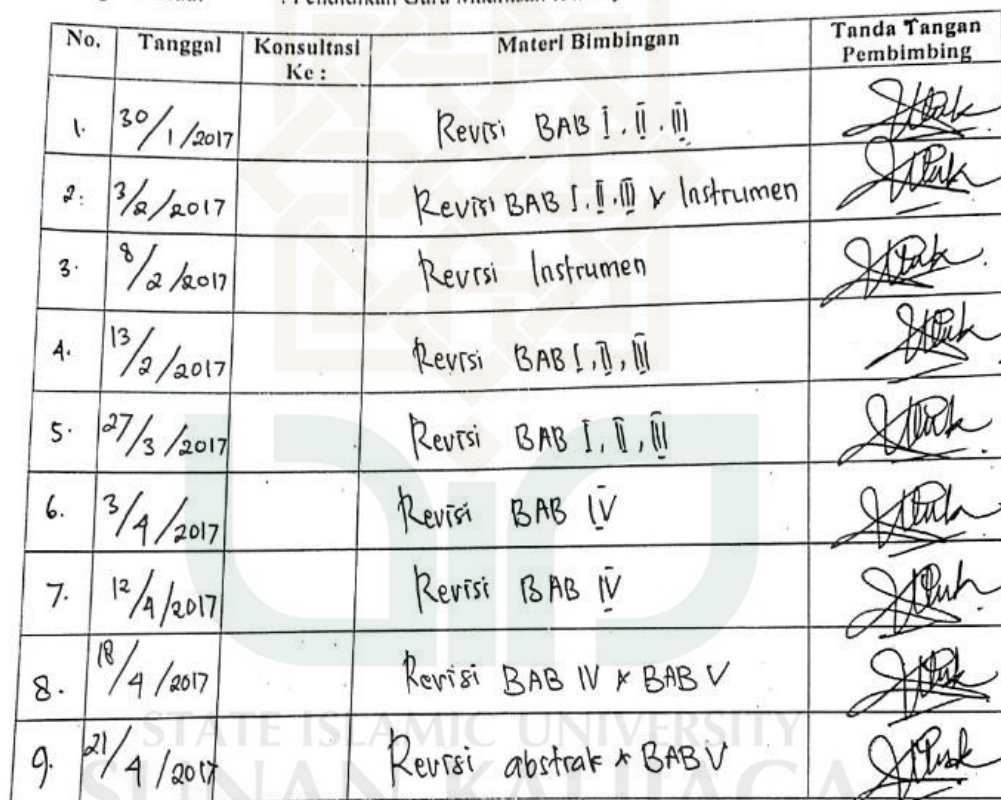 : Pendidikan Guru
No. Tanggal Konsultasi Ke : Materi Bimbingan Tanda Tangan Pembimbing
1. 30/1/2017 Revisi BAB I. II. III
2. 3/2/2017 Revisi BAB I. II. III & Instrumen
3. 8/2/2017 Revisi Instrumen
4. 13/2/2017 Revisi BAB I, II, III
5. 27/3/2017 Revisi BAB I, II, III
6. 3/4/2017 Revisi BAB IV
7. 12/4/2017 Revisi BAB IV
8. 18/4/2017 Revisi BAB IV & BAB V
9. 21/4/2017 Revisi abstrak & BAB V
STATE ISLAMIC UNIVERSITY
SUNAN KALIJAGA